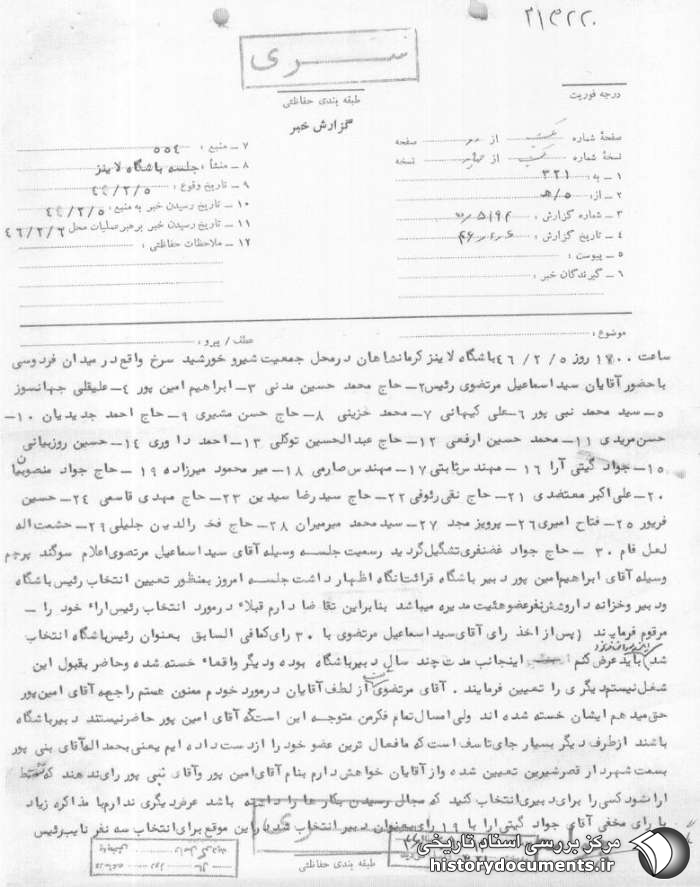 ۲۱۵۲۲۰
سری
طبقه بندی حفاظتی
گزارش خبر
درجه فوریت
صفحهٔ شماره یک از دو صفحه
نسخهٔ شماره یک از چهار نسخه
۱ ـ به : ۳۲۱
۲ ـ از : ۵/هـ
۳ ـ شماره گزارش :
۴ ـ تاریخ گزارش :
۵ ـ پیوست :
۶ ـ گیرندگان خبر :
۷ ـ منبع : ۵۵۴
۸ ـ منشأ : جلسه باشگاه لاینز
۹ ـ تاریخ وقوع : ۴۶/۲/۵
۱۰ ـ تاریخ رسیدن خبر به منبع : ۴۶/۲/۵
۱۱ ـ تاریخ رسیدن خبر برهبر عملیات محل ۴۶/۲/۶
۱۲ ـ ملاحظات حفاظتی :
موضوع :
عطف / پیرو :
ساعت ۱۷۰۰ روز ۴۶/۲/۵ باشگاه لاینز کرمانشاهان درمحل جمعیت شیرو خورشید سرخ واقع در میدان فردوسی
با حضور آقایان سید اسماعیل مرتضوی رئیس ۲ـ حاج محمد حسین مدنی ۳ـ ابراهیم امین پور ۴ـ علیقلی جهانسوز
۵ـ سید محمد نبی پور ۶ـ علی کیهانی ۷ـ محمد خزینی ۸ـ حاج حسن مشیری ۹ـ حاج احمد جدیدیان ۱۰ـ
حسن مریدی ۱۱ـ محمد حسین ارفعی ۱۲ـ حاج عبدالحسین توکلی ۱۳ـ احمد داوری ۱۴ـ حسین روزبیانی
۱۵ـ جواد گیتی آرا ۱۶ـ مهندس ثابتی ۱۷ـ مهندس صارمی ۱۸ـ میر محمود میرزاده ۱۹ـ حاج جواد منصوبیان
۲۰ـ علی اکبر معتضدی ۲۱ـ حاج نقی رئوفی ۲۲ـ حاج سید رضا سیدین ۲۳ـ حاج مهدی قاسمی ۲۴ـ حسین
فریور ۲۵ـ فتاح امیری ۲۶ـ پرویز مجد ۲۷ـ سید محمد میرمیران ۲۸ـ حاج فخرالدین جلیلی ۲۹ـ حشمت اله
لعل فام ۳۰ـ حاج جواد غضنفری تشکیل گردید رسمیت جلسه وسیله آقای سید اسماعیل مرتضوی اعلام سوگند پرچم
وسیله آقای ابراهیم امین پور دبیر باشگاه قرائت انگاه اظهار داشت جلسه امروز بمنظور تعیین انتخاب رئیس باشگاه
ودبیر وخزانه دار و شش نفر عضو هئیت مدیره میباشد بنابراین تقاضا دارم قبلاً در مورد انتخاب رئیس اراء خود را ـ
مرقوم فرمایند (پس از اخذ رای آقای سید اسماعیل مرتضوی با ۳۰ رای کمافی السابق بعنوان رئیس باشگاه انتخاب
شد) باید عرض کنم اینجانب مدت چند سال دبیر باشگاه بوده ودیگر واقعاً خسته شده وحاضر بقبول این
شغل نیستم دیگری را تعیین فرمایند . آقای مرتضوی از لطف آقایان در مورد خودم ممنون هستم راجع به آقای امین پور
حق میدهم ایشان خسته شده اند ولی امسال تمام فکر من متوجه این است که آقای امین پور حاضر نیستند دبیر باشگاه
باشند از طرف دیگر بسیار جای تاسف است که ما فعال ترین عضو خود را از دست داده ایم یعنی بحمداله آقای بنی پور
بسمت شهردار قصر شیرین تعیین شده و از آقایان خواهش دارم بنام آقای امین پور وآقای نبی پور رای ندهند که
ارا شود کسی را برای دبیری انتخاب کنید که مجال رسیدن بکارها را داشته باشد عرض دیگری ندارم با مذاکره زیاد
با رای مخفی آقای جواد گیتی آرا با ۱۹ رای بعنوان دبیر انتخاب شد در این موقع برای انتخاب سه نفر نایب رئیس
سری
طبقه بندی حفاظتی
مرکز بررسی اسناد تاریخی
historydocuments.ir